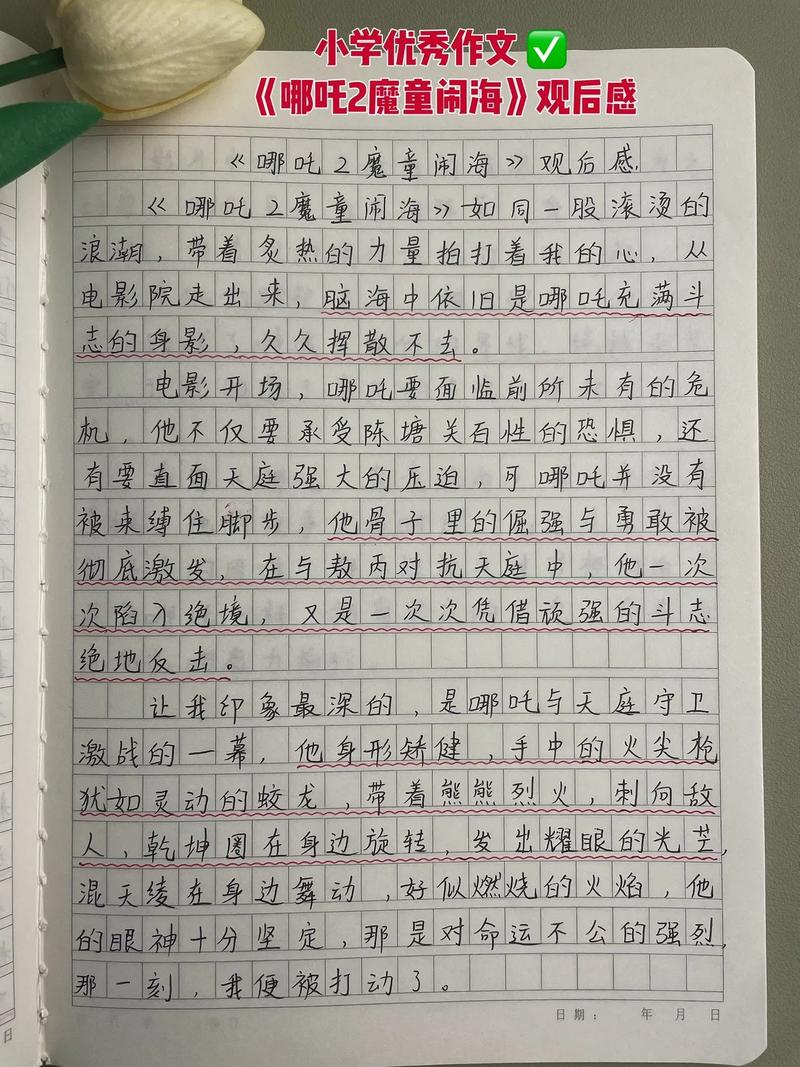 小学优秀作文✅
《哪吒2魔童闹海》观后感
《哪吒2魔童闹海》观后感.
《哪吒2魔童闹海》如同一股滚烫的
浪潮，带着炙热的力量拍打着我的心，从
电影院走出来，脑海中依旧是哪吒充满斗
志的身影，久久挥散不去。
电影开场，哪吒要面临前所未有的危
机，他不仅要承受陈塘关百性的恐惧，还
有要直面天庭强大的压迫，可哪吒并没有
被束缚住脚步，他骨子里的倔强与勇敢被
彻底激发，在与敖丙对抗天庭中，他一次
次陷入绝境，又是一次次凭借顽强的斗志
绝地反击。
让我印象最深的，是哪吒与天庭守卫
激战的一幕，他身形矫健，手中的火尖枪
犹如灵动的蛟龙，带着熊熊烈火，刺向敌
人，乾坤圈在身边旋转，发出耀眼的光芒，
混天绫在身边舞动，好似燃烧的火焰，他
的眼神十分坚定，那是对命运不公的强烈，
那一刻，我便被打动了。
日期： 年 月 日